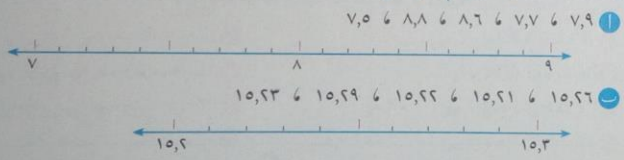 أ ٧,٩ ، ٧,٧ ، ٨,٦ ، ٨,٨ ، ٧,٥
٧ ٨ ٩
ب ١٥,٢٦ ، ١٥,٢١ ، ١٥,٢٢ ، ١٥,٢٩ ، ١٥,٢٣
١٥,٢ ١٥,٣